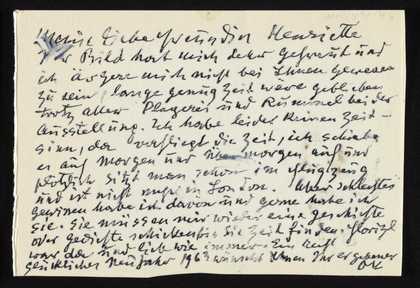 Meine liebe Freundin Henriette
Ihr Bild hat mich sehr gefreut und
ich ärgere mich nicht bei Ihnen gewesen
zu sein lange genug Zeit wäre geblieben
trotz aller Plagerei und Rummel bei der
Ausstellung. Ich habe leider keinen Zeit-
sinn, da verfliegt die Zeit, ich schiebe
es auf morgen und übermorgen auf und
plötzlich sitzt man schon im Flugzeug
und ist nicht mehr in London. Aber schlechtes
Gewissen habe ich davon und gerne habe ich
Sie. Sie müssen mir wieder eine Geschichte
oder Gedichte schicken bis Sie Zeit finden.
war da und lieb wie immer. Ein recht
glückliches Neujahr 1963 wünscht Ihnen Ihr ergebener
OK